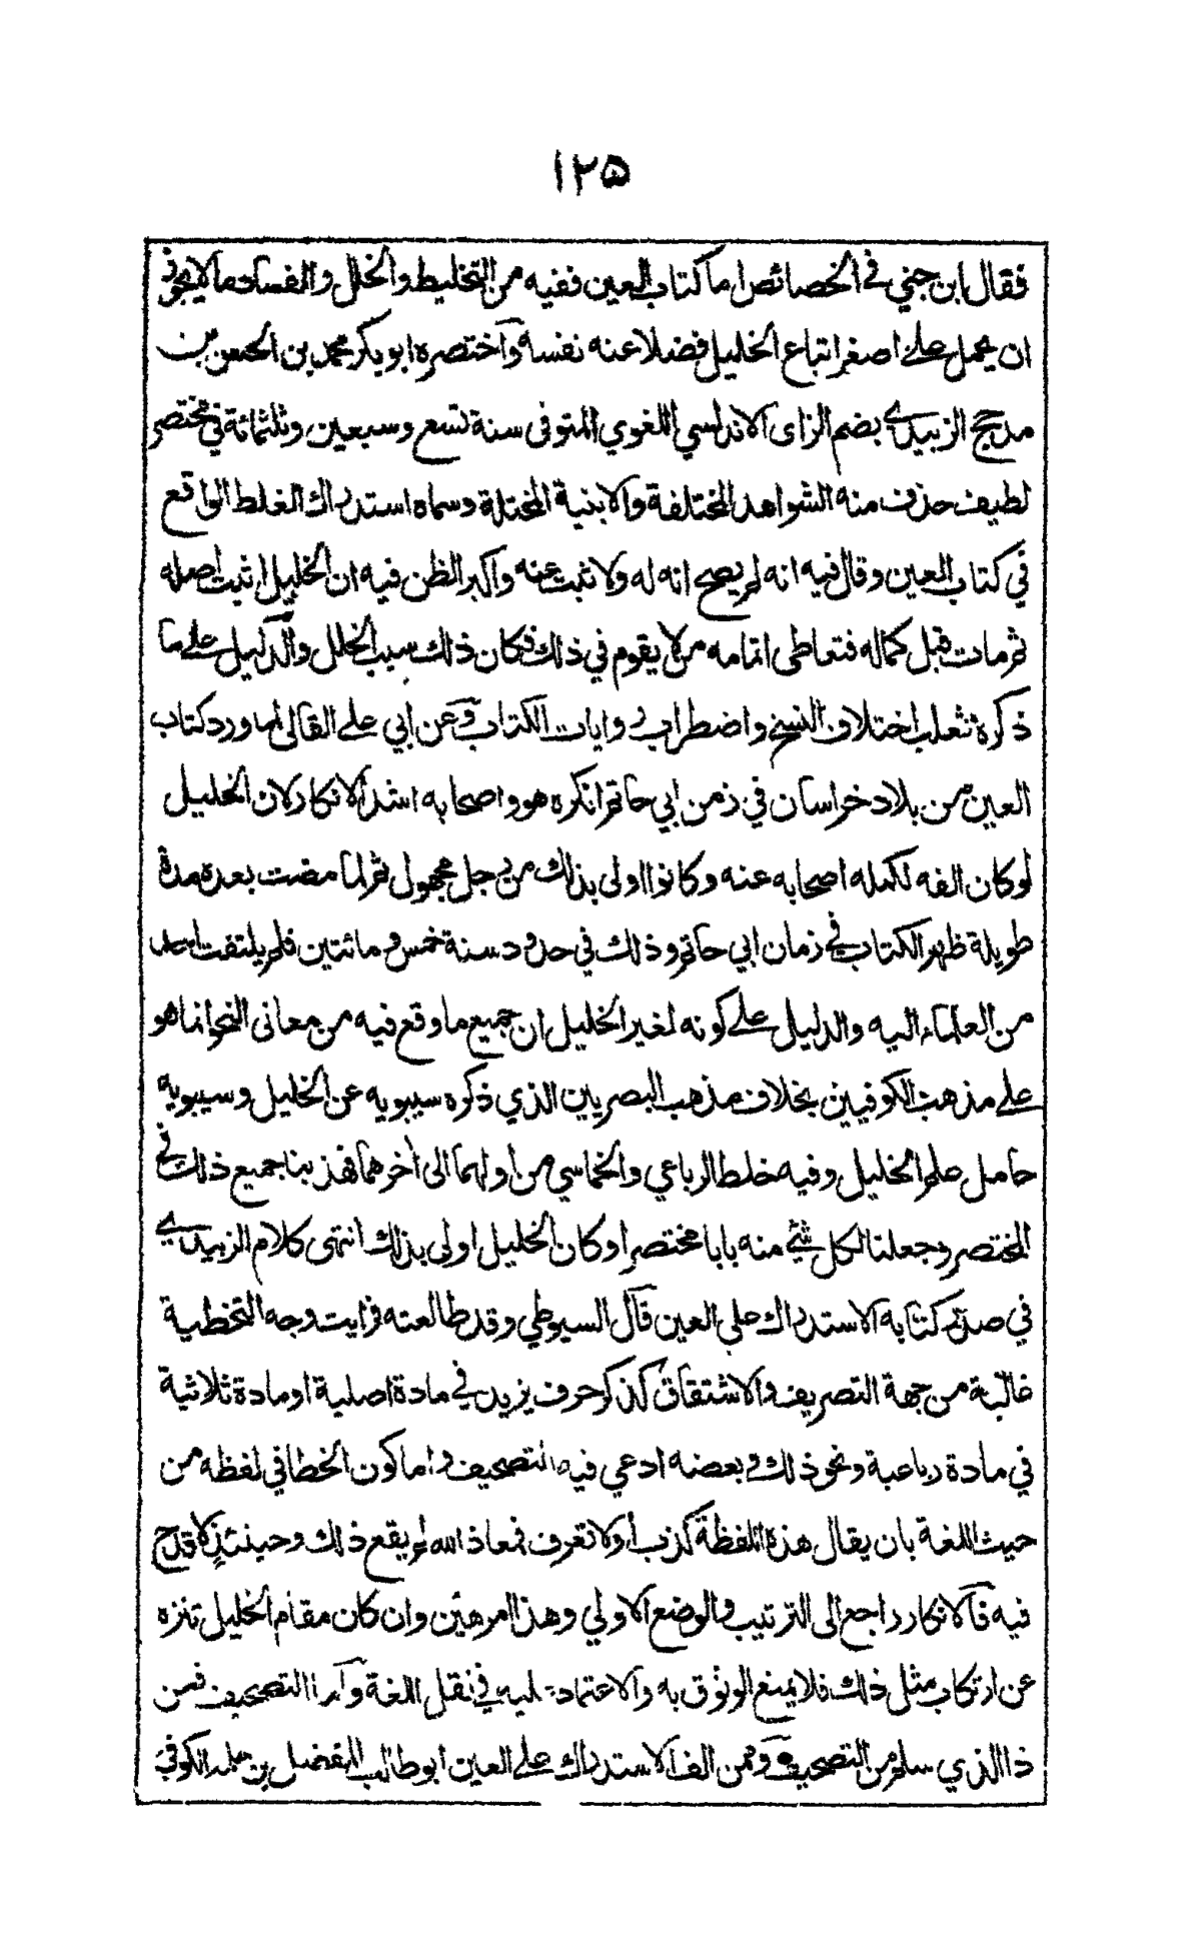 ١٢٥
فقال ابن جني في الخصائص اما كتاب العين ففيه من التخليط والخلل والفساد ما لا يجوز
ان يحمل على اصغر اتباع الخليل فضلا عنه نفسه وآختصره ابو بكر محمد بن الحسن بن
مدحج الزبيدي بضم الزاى الاندلسي اللغوي المتوفى سنة تسع وسبعين وثلثمائة في مختصر
لطيف حذف منه الشواهد المختلفة والابنية المختلة وسماه استدراك الغلط الواقع
في كتاب العين وقال فيه انه لم يصح انه له ولا ثبت عنه واكبر الظن فيه ان الخليل اثبت اصله
ثم مات قبل كماله فتعاطى اتمامه من لا يقوم في ذلك فكان ذلك سبب الخلل والدليل على ما
ذكره ثعلب اختلاف النسخ واضطراب روايات الكتاب وعن ابي علي القالى لما ورد كتاب
العين من بلاد خراسان في زمن ابي حاتم انكره هو واصحابه اشد الانكار لان الخليل
لو كان الفه لحمله اصحابه عنه وكانوا اولى بذلك من رجل مجهول ثم لما مضت بعده مدة
طويلة ظهر الكتاب في زمان ابي حاتم وذلك في حدود سنة خمس ومائتين فلم يلتفت احد
من العلماء اليه والدليل على كونه لغير الخليل ان جميع ما وقع فيه من معانى النحو انما هو
على مذهب الكوفيين بخلاف مذهب البصريين الذي ذكره سيبويه عن الخليل وسيبويه
حامل علم الخليل وفيه خلط الرباعي والخماسي من اولهما الى أخرهما فهذبنا جميع ذلك في
المختصر وجعلنا لكل شئ منه بابا مختصرا وكان الخليل اولى بذلك انتهى كلام الزبيدي
في صدر كتابه الاستدراك على العين قآل السيوطي وقد طالعته فرايت وجه التخطية
غالبة من جهة التصريف والاشتقاق كذكر حرف يزيد في مادة اصلية او مادة ثلاثية
في مادة رباعية ونحو ذلك وبعضه ادعي فيه التصحيف واما كون الخطا في لفظه من
حيث اللغة بان يقال هذه اللفظة كذب أو لا تعرف فمعاذ الله لم يقع ذلك وحينئذ لا قدح
فيه فآلانكار راجع الى الترتيب والوضع الاولي وهذا امر هين وان كان مقام الخليل تنزه
عن ارتكاب مثل ذلك فلا يمنع الوثوق به والاعتماد عليه في نقل اللغة وآما التصحيف فمن
ذا الذي سلم من التصحيف وممن الف الاستدراك على العين ابو طالب المفضل بن سلمة الكوفي